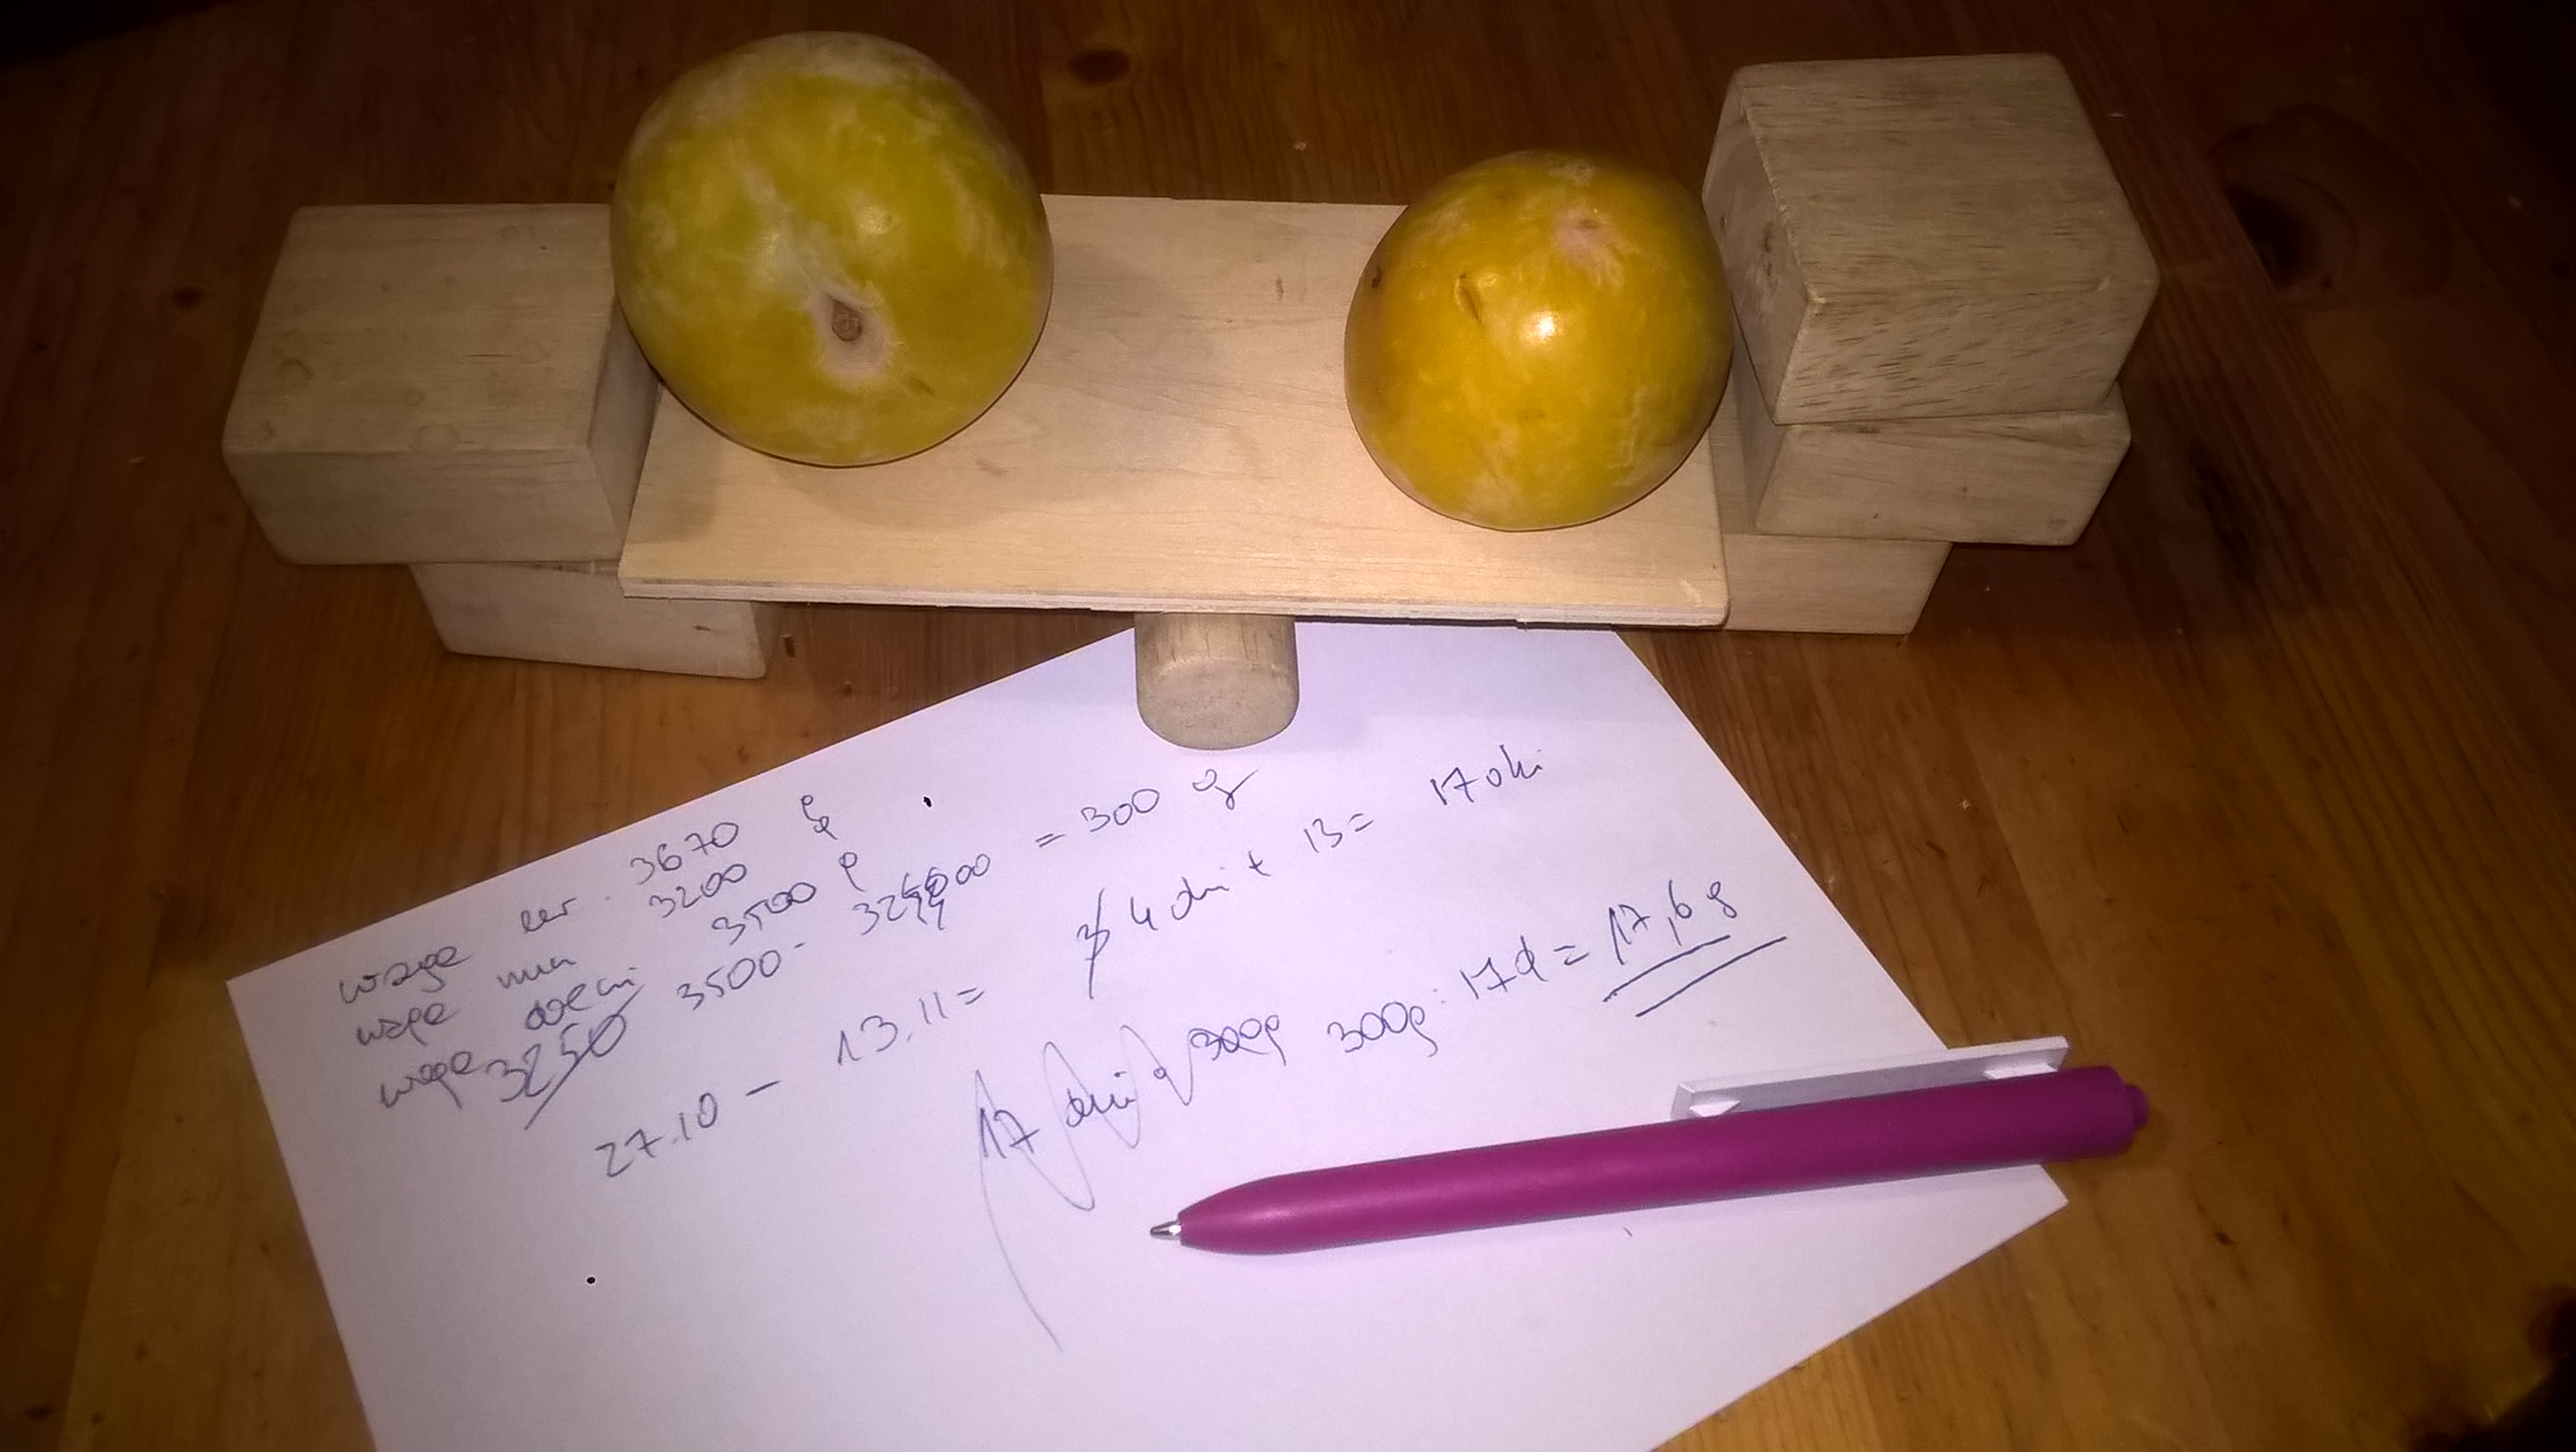 waga ur. 3670 g
waga min 3200 g
waga 3500 g
3250 3500 - 3200 = 300 g
27.10 - 13.11 = 4 dni + 13 = 17 dni
17 dni 300g 300g : 17d = 17,6 g